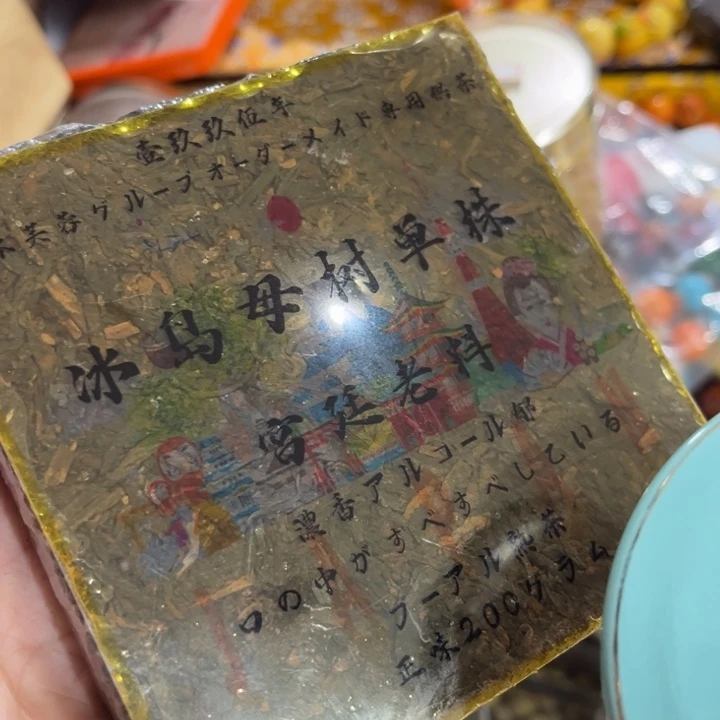 壹玖玖伍年
芙蓉グループオーダーメイド専用熟茶
冰島母树单株
宫廷老料
濃香アルコール郁
口の中がすべすべしている
プーアル熟茶
正味200グラム